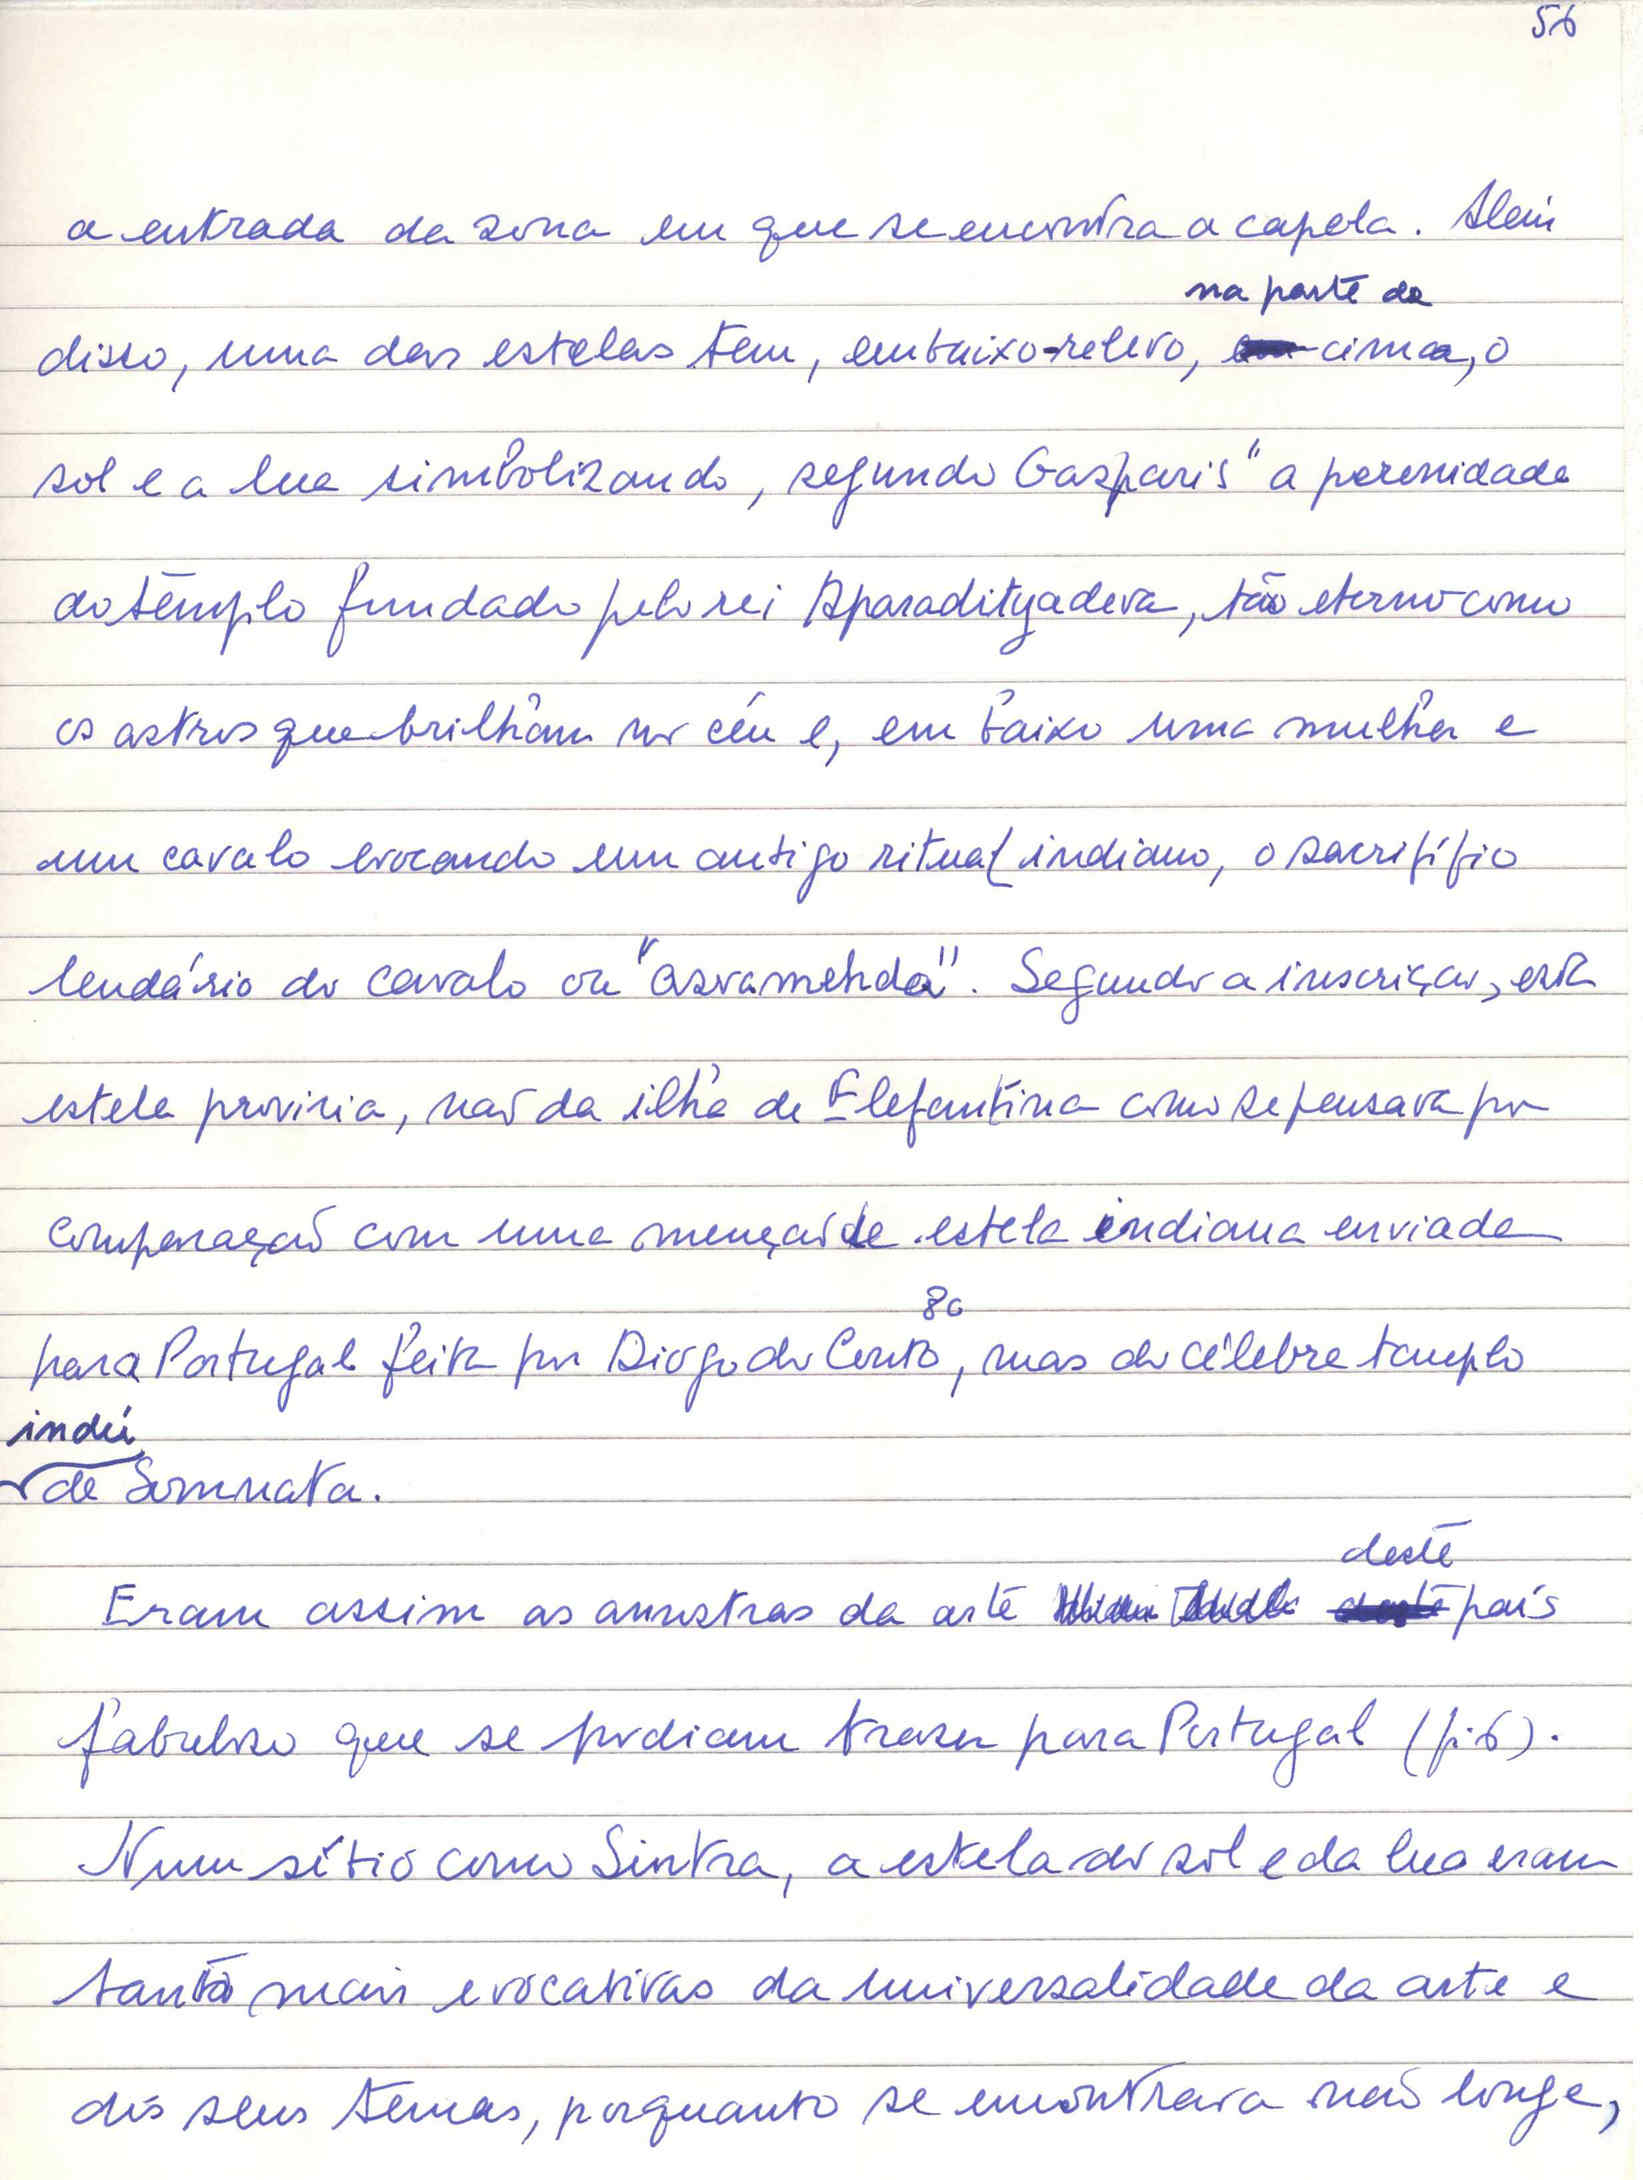 56
a entrada da zona em que se encontra a capela. Além
na parte de
disso, uma das estelas tem, em baixo-relevo, cima, o
sol e a lua simbolizando, segundo Gasparis "a perenidade
do templo fundado pelo rei Aparadityadeva, tão eterno como
os astros que brilham no céu e, em baixo uma mulher e
um cavalo evocando um antigo ritual indiano, o sacrifífio
lendário do cavalo ou "asvamehda". Segundo a inscrição, esta
estela proviria, não da ilha de Elefantina como se pensava por
comparação com uma menção de estela indiana enviada
80
para Portugal feita por Diogo do Couto, mas do célebre templo
indú
de Somnata.
deste
Eram assim as amostras da arte país
fabuloso que se podiam trazer para Portugal (fi6).
Num sítio como Sintra, a estela do sol e da lua eram
tanto mais evocativas da universalidade da arte e
dos seus temas, porquanto se encontrava não longe,